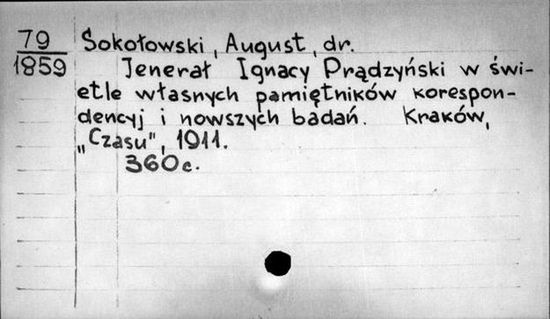 79 Sokołowski, August, dr.
1859 Jenerał Ignacy Prądzyński w świ-
etle własnych pamiętników korespon-
dencyj i nowszych badań. Kraków,
„Czasu", 1911.
360 c.